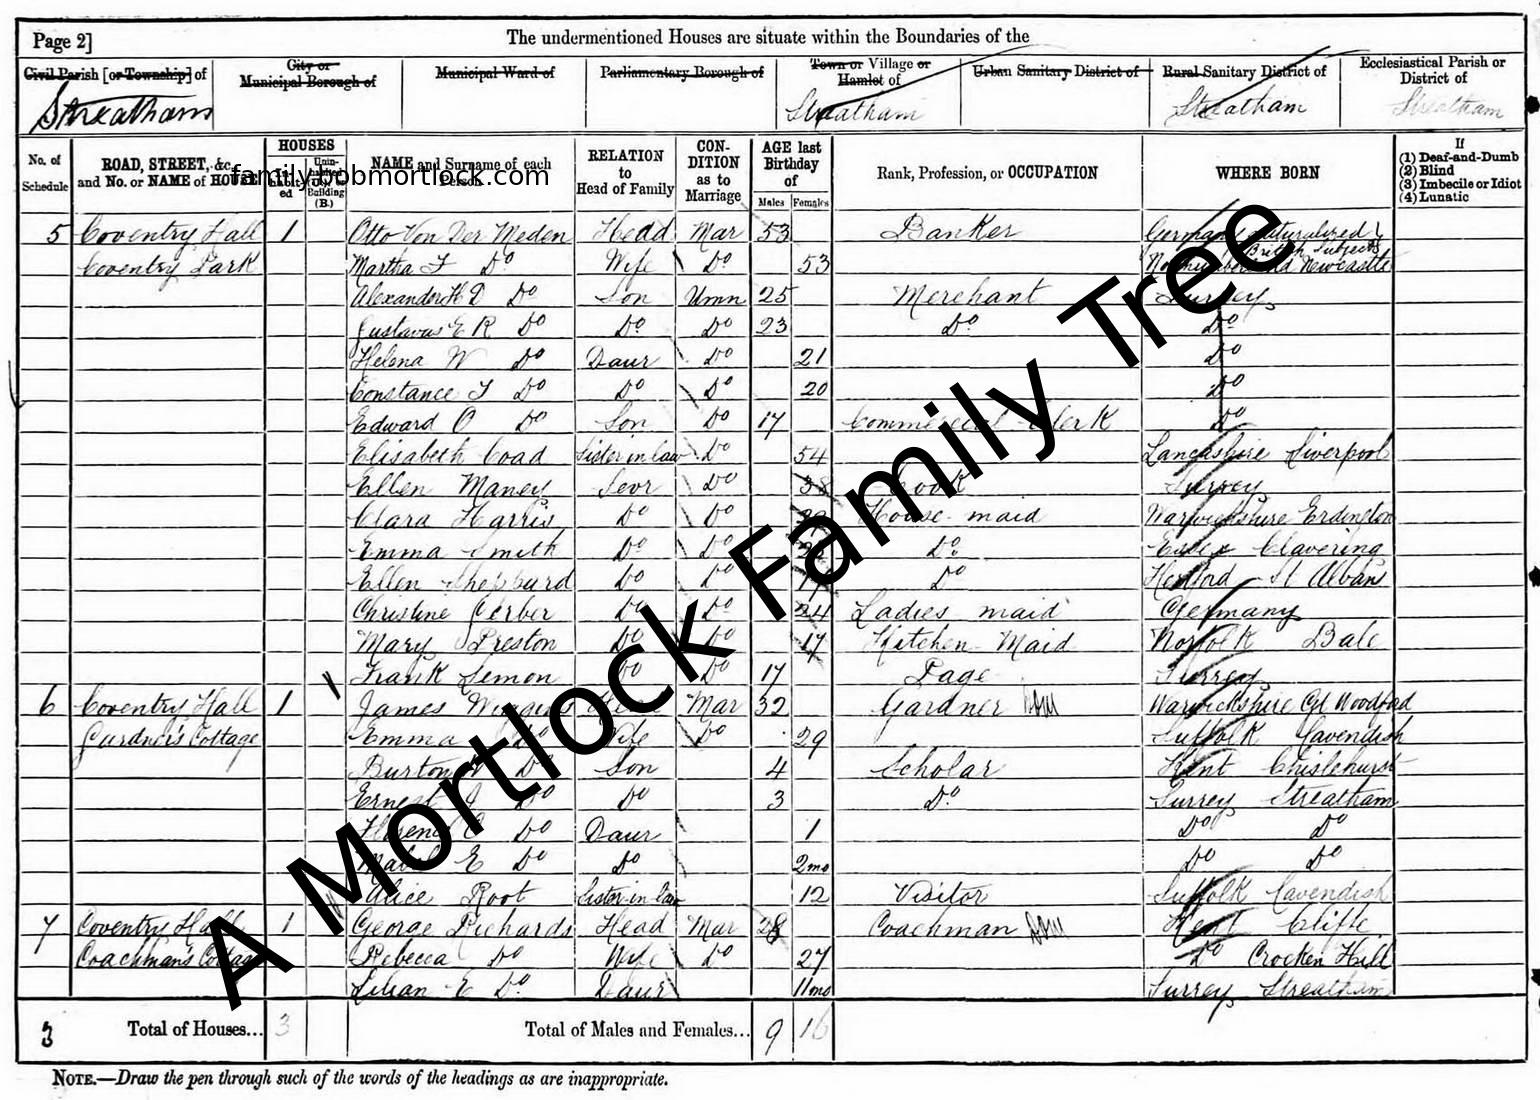 Page 2]
The undermentioned Houses are situate within the Boundaries of the
Civil Parish [or Township] of
City or Municipal Borough of
Municipal Ward of
Parliamentary Borough of
Town or Village or Hamlet of
Urban Sanitary District of
Rural Sanitary District of
Ecclesiastical Parish or District of
Streatham Streatham Streatham Streatham
No. of Schedule
ROAD, STREET, &c. and No. or NAME of HOUSE
HOUSES
Inhabited
Uninhabited or Building (B.)
NAME and Surname of each Person
RELATION to Head of Family
CONDITION as to Marriage
AGE last Birthday of
Males Females
Rank, Profession, or OCCUPATION
WHERE BORN
If
(1) Deaf-and-Dumb
(2) Blind
(3) Imbecile or Idiot
(4) Lunatic
family.bobmortlock.com
5 Coventry Hall 1 Otto Von Der Meden Head Mar 53 Banker Germany naturalized British Subject
Coventry Park Martha F Do Wife Do 53 Northumberland Newcastle
Alexander H D Do Son Unm 25 Merchant Surrey
Gustavus E R Do Do Do 23 Do Do
Helena W Do Daur Do 21 Do
Constance F Do Do Do 20 Do
Edward O Do Son Do 17 Commercial Clerk Do
Elisabeth Coad Sister in law Do 54 Lancashire Liverpool
Ellen Maney Serv Do Cook Surrey
Clara Harris Do Do House-maid Warwickshire Erdington
Emma Smith Do Do Do Essex Clavering
Ellen Sheppard Do Do Do Hertford St Albans
Christine Gerber Do Do 24 Ladies maid Germany
Mary Preston Do Do 17 Kitchen Maid Norfolk Bale
Frank Lemon Do Do 17 Page Surrey
6 Coventry Hall 1 James Wiggins Head Mar 32 Gardner Dom Warwickshire
Gardner's Cottage Emma Do Wife Do 29 Suffolk Cavendish
Burton Do Son 4 Scholar Kent Chislehurst
Ernest J Do Do 3 Do Surrey Streatham
Florence C Do Daur 1 Do Do
Mabel E Do Do 2mo Do Do
Alice Root Sister-in-law 12 Visitor Suffolk Cavendish
7 Coventry Hall 1 George Richards Head Mar 28 Coachman Dom Kent Cliffe
Coachman's Cottage Rebecca Do Wife Do 27 Do Crocken Hill
Lilian E Do Daur 11mo Surrey Streatham
3 Total of Houses... 3 Total of Males and Females... 9 16
NOTE.—Draw the pen through such of the words of the headings as are inappropriate.
A Mortlock Family Tree